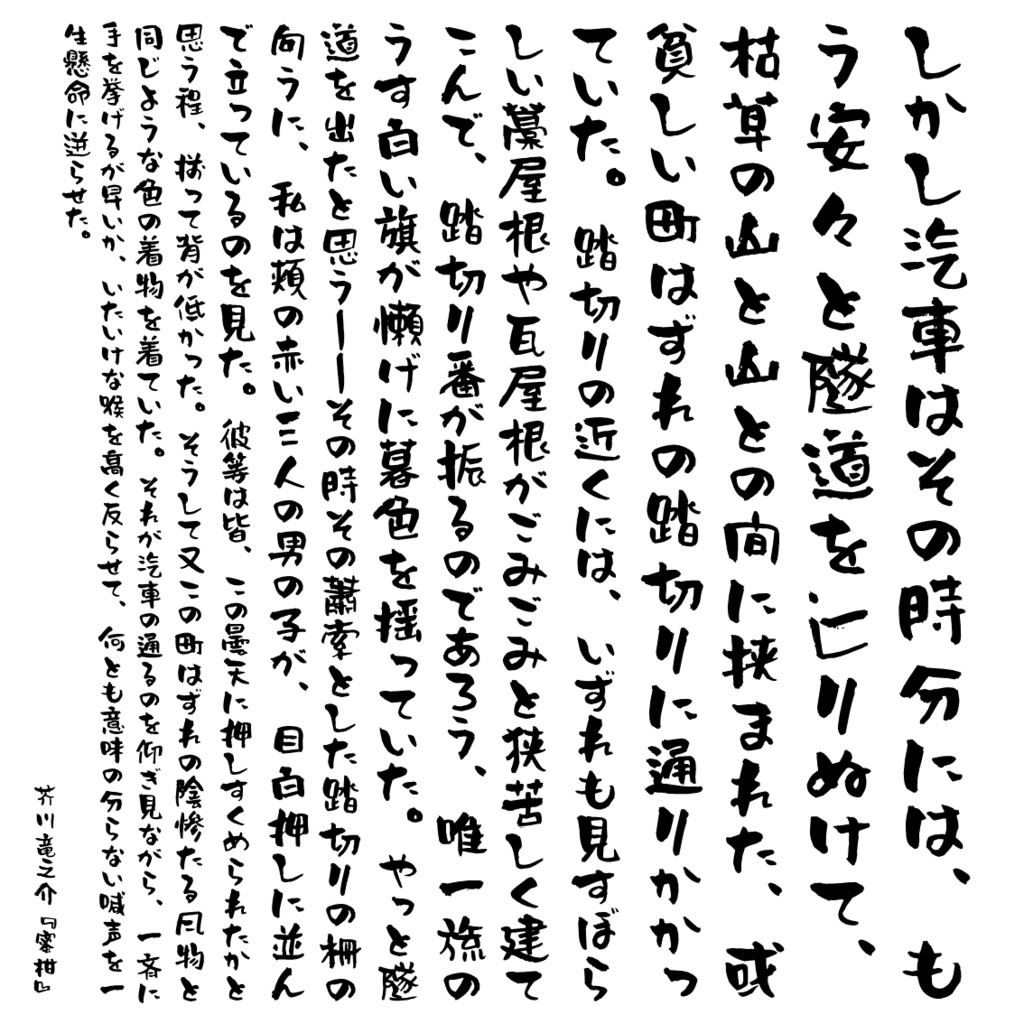 しかし汽車はその時分には、も
う安々と隧道を辷りぬけて、
枯草の山と山との間に挟まれた、或
貧しい町はずれの踏切りに通りかかっ
ていた。踏切りの近くには、いずれも見すぼら
しい藁屋根や瓦屋根がごみごみと狭苦しく建て
こんで、踏切り番が振るのであろう、唯一旒の
うす白い旗が懶げに暮色を揺っていた。やっと隧
道を出たと思う――その時その蕭索とした踏切りの柵の
向うに、私は頬の赤い三人の男の子が、目白押しに並ん
で立っているのを見た。彼等は皆、この曇天に押しすくめられたかと
思う程、揃って背が低かった。そうして又この町はずれの陰惨たる風物と
同じような色の着物を着ていた。それが汽車の通るのを仰ぎ見ながら、一斉に
手を挙げるが早いか、いたいけな喉を高く反らせて、何とも意味の分らない喊声を一
生懸命に迸らせた。
芥川竜之介『蜜柑』